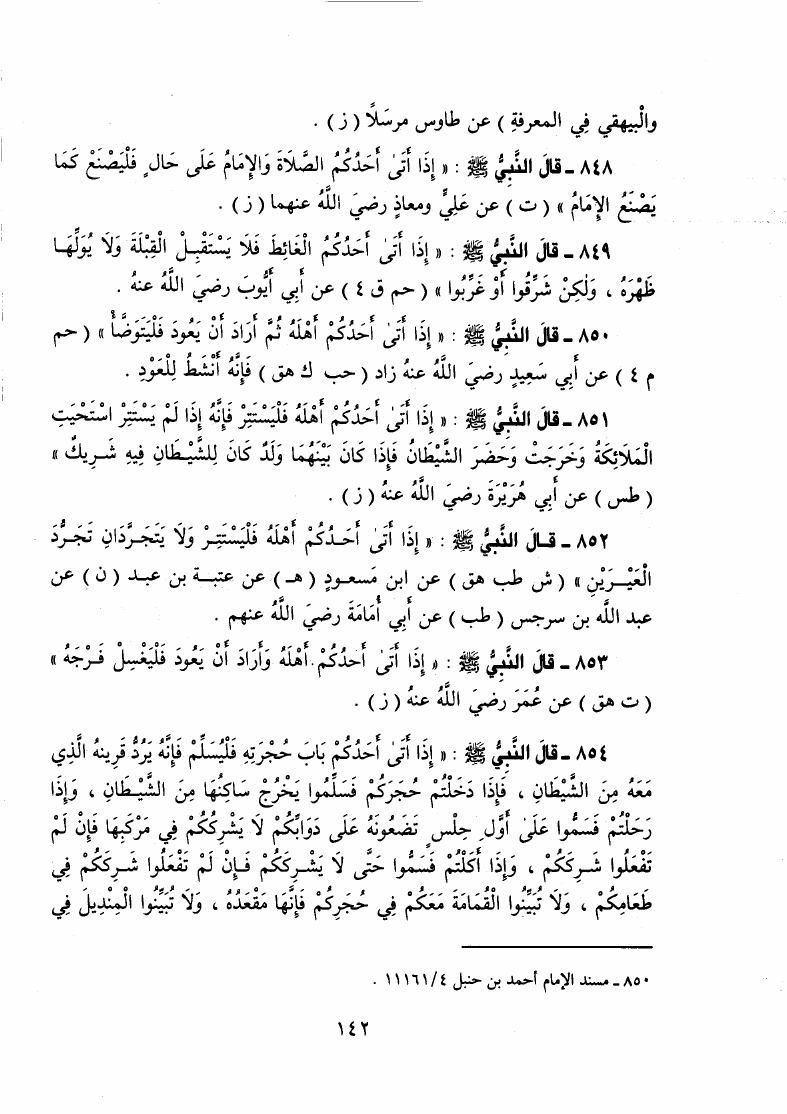 والْبيهقي في المعرفة ) عن طاوس مرسَلًا ( ز ) .
٨٤٨ ـ قالَ النَّبِيُّ ﷺ : « إِذَا أَتَىٰ أَحَدُكُمُ الصَّلَاةَ وَالإِمَامُ عَلَى حَالٍ فَلْيَصْنَعْ كَمَا
يَصْنَعُ الإِمَامُ » ( ت ) عن عَلِيٍّ ومعاذٍ رضيَ اللَّهُ عنهما ( ز ) .
٨٤٩ ـ قالَ النَّبِيُّ ﷺ : « إِذَا أَتَىٰ أَحَدُكُمُ الْغَائِطَ فَلَا يَسْتَقْبِلِ الْقِبْلَةَ وَلَا يُوَلِّهَا
ظَهْرَهُ ، وَلٰكِنْ شَرِّقُوا أَوْ غَرِّبُوا » ( حم ق ٤ ) عن أبي أَيُّوبَ رضيَ اللَّهُ عنهُ .
٨٥٠ ـ قالَ النَّبِيُّ ﷺ : « إِذَا أَتَىٰ أَحَدُكُمْ أَهْلَهُ ثُمَّ أَرَادَ أَنْ يَعُودَ فَلْيَتَوَضَّأْ » ( حم
م ٤ ) عن أَبي سَعِيدٍ رضيَ اللَّهُ عنهُ زاد ( حب ك هق ) فَإِنَّهُ أَنْشَطُ لِلْعَوْدِ .
٨٥١ ـ قالَ النَّبِيُّ ﷺ : « إِذَا أَتَىٰ أَحَدُكُمْ أَهْلَهُ فَلْيَسْتَتِرْ فَإِنَّهُ إِذَا لَمْ يَسْتَتِرْ اسْتَحْيَتِ
الْمَلَائِكَةُ وَخَرَجَتْ وَحَضَرَ الشَّيْطَانُ فَإِذَا كَانَ بَيْنَهُمَا وَلَدٌ كَانَ لِلشَّيْطَانِ فِيهِ شَرِيكٌ »
( طس ) عن أَبي هُرَيْرَةَ رضيَ اللَّهُ عنهُ ( ز ) .
٨٥٢ ـ قـالَ النَّبِيُّ ﷺ : « إِذَا أَتَىٰ أَحَدُكُمْ أَهْلَهُ فَلْيَسْتَتِرْ وَلَا يَتَجَرَّدَانِ تَجَرُّدَ
الْعَيْرَيْنِ » ( ش طب هق ) عن ابن مَسعودٍ ( هـ ) عن عتبة بن عبد ( ن ) عن
عبد اللَّه بن سرجس ( طب ) عن أَبي أُمَامَةَ رضيَ اللَّهُ عنهم .
٨٥٣ ـ قالَ النَّبِيُّ ﷺ : « إِذَا أَتَىٰ أَحدُكُمْ أَهْلَهُ وَأَرَادَ أَنْ يَعُودَ فَلْيَغْسِلْ فَرْجَهُ »
( ت هق ) عن عُمَرَ رضيَ اللَّهُ عنهُ ( ز ) .
٨٥٤ ـ قالَ النَّبِيُّ ﷺ : « إِذَا أَتَىٰ أَحَدُكُمْ بَابَ حُجْرَتِهِ فَلْيُسَلِّمْ فَإِنَّهُ يَرُدُّ قَرِينَهُ الَّذِي
مَعَهُ مِنَ الشَّيْطَانِ ، فَإِذَا دَخَلْتُمْ حُجَرَكُمْ فَسَلِّمُوا يَخْرُجْ سَاكِنُهَا مِنَ الشَّيْطَانِ ، وَإِذَا
رَحَلْتُمْ فَسَمُّوا عَلَى أَوَّلِ حِلْسٍ تَضَعُونَهُ عَلَى دَوَابِّكُمْ لَا يَشْرِكْكُمْ فِي مَرْكَبِهَا فَإِنْ لَمْ
تَفْعَلُوا شَرِكَكُمْ ، وَإِذَا أَكَلْتُمْ فَسَمُّوا حَتَّى لَا يَشْرِكَكُمْ فَإِنْ لَمْ تَفْعَلُوا شَرِكَكُمْ فِي
طَعَامِكُمْ ، وَلَا تُبَيِّتُوا الْقُمَامَةَ مَعَكُمْ فِي حُجَرِكُمْ فَإِنَّهَا مَقْعَدُهُ ، وَلَا تُبَيِّتُوا الْمِنْدِيلَ فِي
٨٥٠ ـ مسند الإمام أحمد بن حنبل ٤/١١١٦١ .
١٤٢